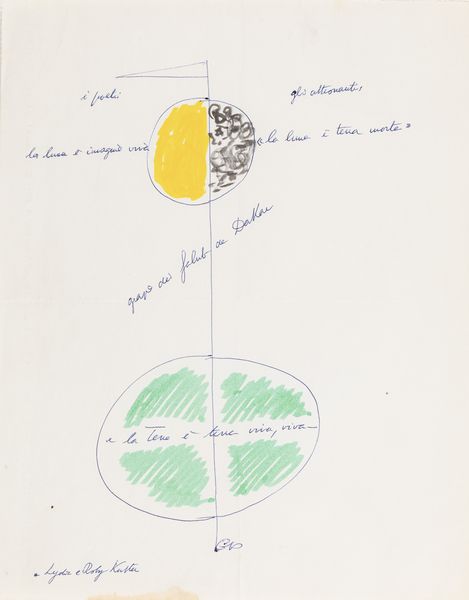 i poeti
gli astronauti
la luna è imagine viva
« la luna è terra morta »
grazie dei saluti da Dakar
e la terra è terra viva, viva
a Lydia e Roby